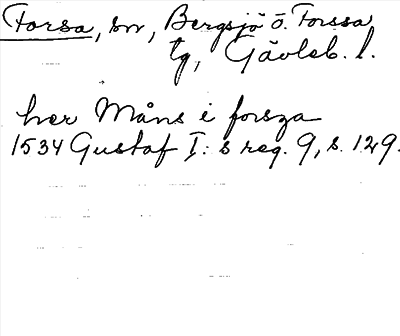 Forsa, sn, Bergsjö o. Forssa
tg, Gävleb. l.
her Måns i forsza
1534 Gustaf I:s reg. 9, s. 129.